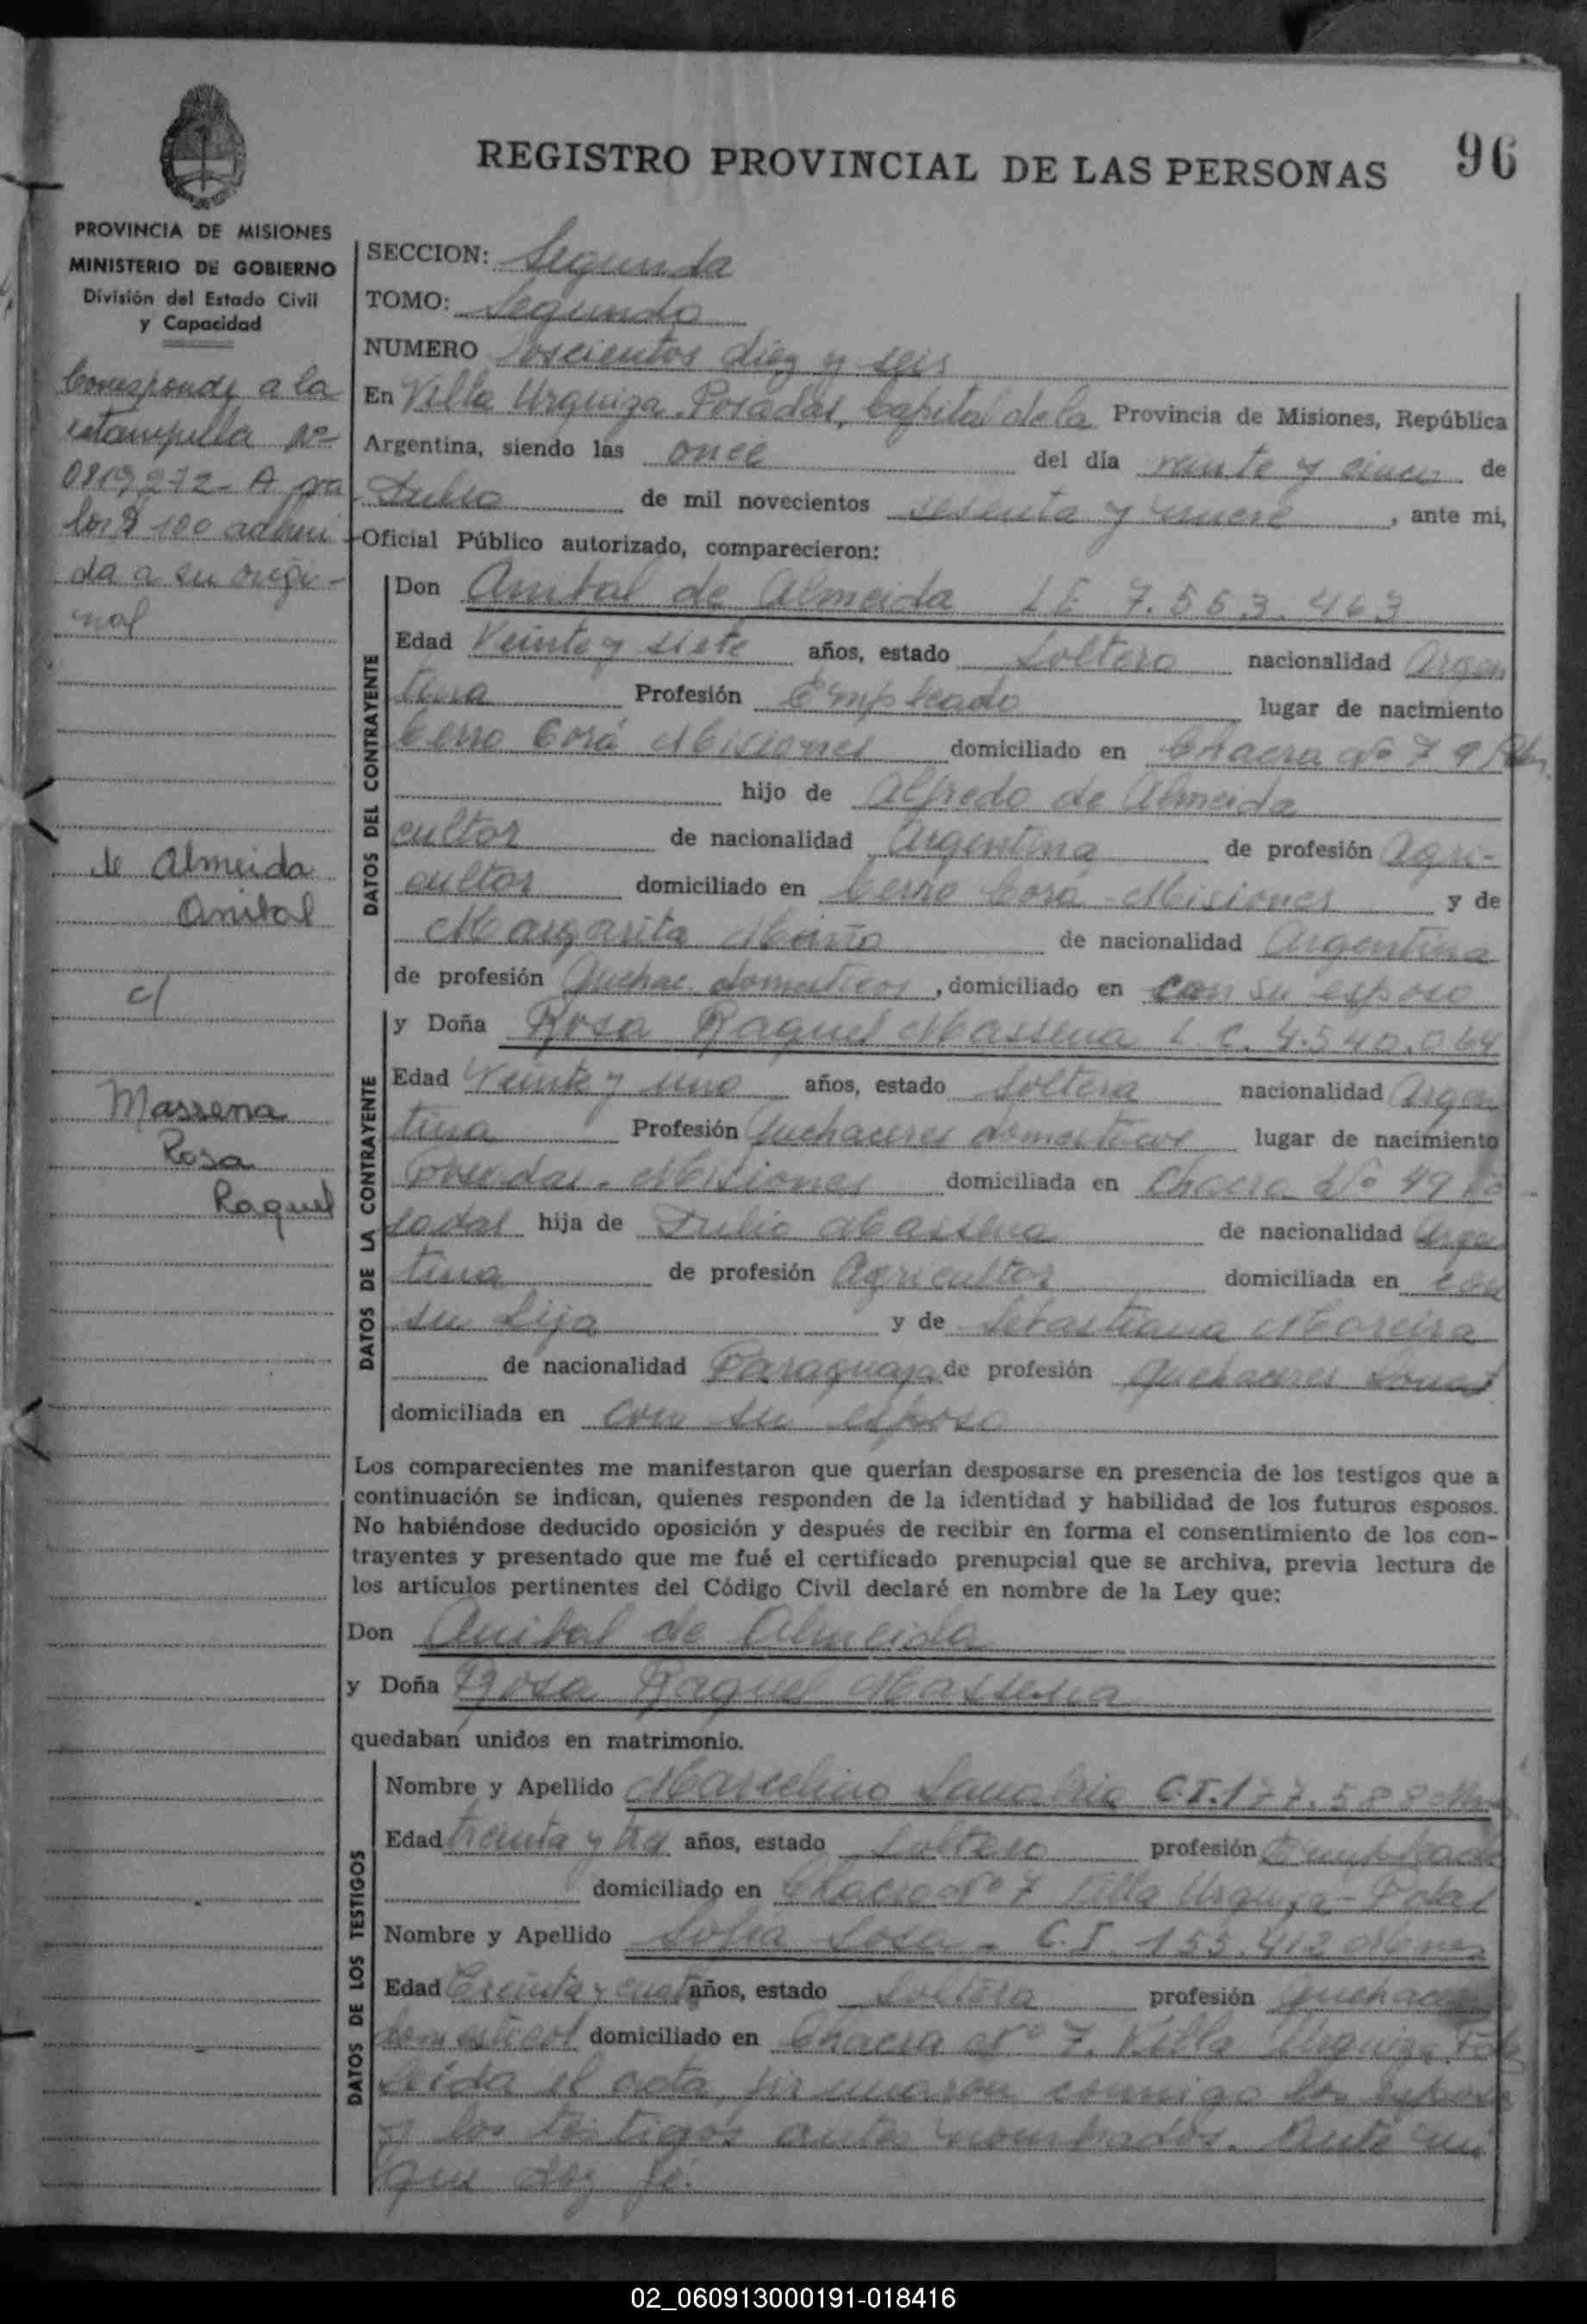 REGISTRO PROVINCIAL DE LAS PERSONAS
96
PROVINCIA DE MISIONES
MINISTERIO DE GOBIERNO
División del Estado Civil
y Capacidad
Corresponde a la
estampilla Nº
0819272-A
los $ 100
da a su origi-
nal
de Almeida
Anibal
c/
Massena
Rosa
Raquel
SECCION: Segunda
TOMO: Segundo
NUMERO Doscientos diez y seis
En Villa Urquiza Posadas, Capital de la Provincia de Misiones, República
Argentina, siendo las once del día veinte y cinco de
Julio de mil novecientos sesenta y nueve, ante mi,
Oficial Público autorizado, comparecieron:
DATOS DEL CONTRAYENTE
Don Anibal de Almeida LE 7.553.463
Edad Veinte y siete años, estado Soltero nacionalidad Argen
tina Profesión Empleado lugar de nacimiento
Cerro Corá Misiones domiciliado en Chacra Nº 79
hijo de Alfredo de Almeida
cultor de nacionalidad Argentina de profesión Agri-
cultor domiciliado en Cerro Corá - Misiones y de
Margarita de nacionalidad Argentina
de profesión Quehac. domesticos, domiciliado en con su esposo
DATOS DE LA CONTRAYENTE
y Doña Rosa Raquel Massena L.C. 4.540.064
Edad Veinte y uno años, estado Soltera nacionalidad Argen
tina Profesión Quehaceres domesticos lugar de nacimiento
Posadas - Misiones domiciliada en Chacra Nº 49 Po
sadas hija de Julio Massena de nacionalidad Argen
tina de profesión Agricultor domiciliada en con
su hija y de Sebastiana Moreira
de nacionalidad Paraguaya de profesión Quehaceres
domiciliada en con su esposo
Los comparecientes me manifestaron que querían desposarse en presencia de los testigos que a
continuación se indican, quienes responden de la identidad y habilidad de los futuros esposos.
No habiéndose deducido oposición y después de recibir en forma el consentimiento de los con-
trayentes y presentado que me fué el certificado prenupcial que se archiva, previa lectura de
los artículos pertinentes del Código Civil declaré en nombre de la Ley que:
Don Anibal de Almeida
y Doña Rosa Raquel Massena
quedaban unidos en matrimonio.
DATOS DE LOS TESTIGOS
Nombre y Apellido Marcelino Sanabria C.I. 177.588
Edad treinta y tres años, estado Soltero profesión Empleado
domiciliado en Chacra Nº 7 Villa Urquiza - Posas
Nombre y Apellido Sofia Sosa - C.I. 155.412 Mnes
Edad Treinta y cuatro años, estado Soltera profesión Quehaceres
domesticos domiciliado en Chacra Nº 7. Villa Urquiza
Leida el acta, firmaron conmigo los esposos
y los testigos antes nombrados. Ante mi
que doy fé.
02_060913000191-018416